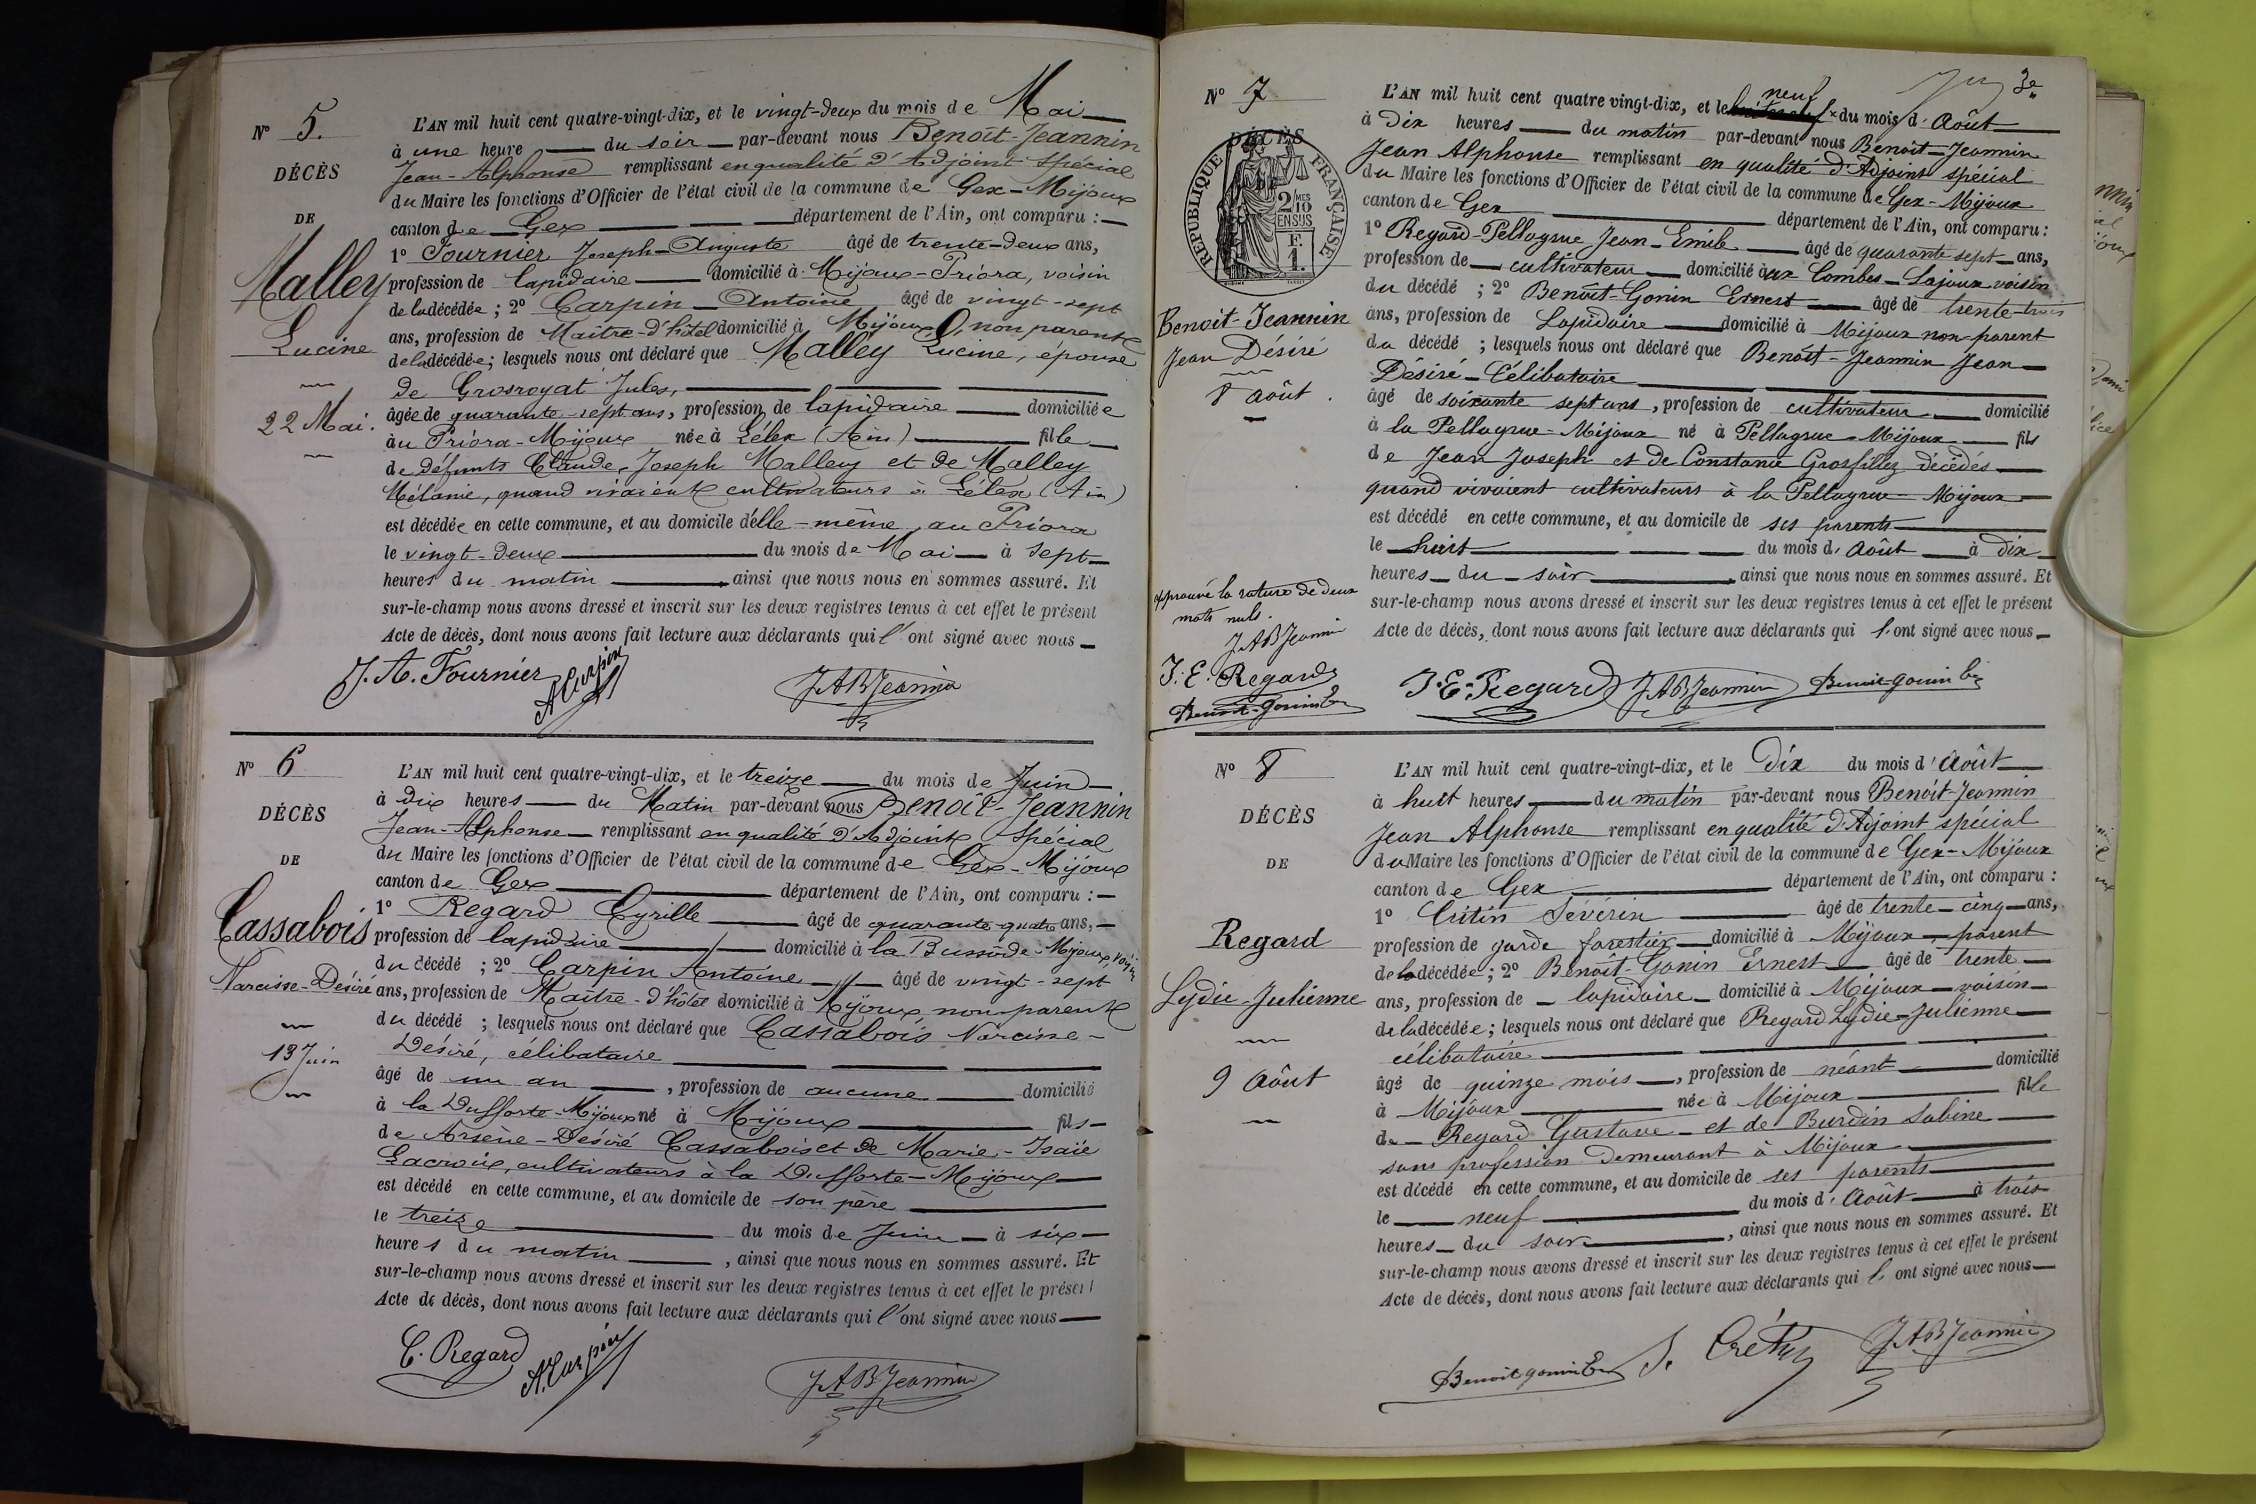 N° 5.
DÉCÈS
DE
Malley
Lucine
22 Mai.
L'AN mil huit cent quatre-vingt-dix, et le vingt-deux du mois de Mai
à une heure du soir par-devant nous Benoît-Jeannin
Jean-Alphonse remplissant en qualité d'Adjoint Spécial
du Maire les fonctions d'Officier de l'état civil de la commune de Gex-Mijoux
canton de Gex département de l'Ain, ont comparu :
1° Fournier Joseph-Auguste âgé de trente-deux ans,
profession de lapidaire domicilié à Mijoux-Priora, voisin
de la décédée ; 2° Carpin Antoine âgé de vingt-sept
ans, profession de Maître-d'hôtel domicilié à Mijoux, non parent
de la décédée ; lesquels nous ont déclaré que Malley Lucine, épouse
de Grosroyat Jules,
âgée de quarante-sept ans, profession de lapidaire domiciliée
au Priora-Mijoux née à Lélex (Ain) fille
de défunts Claude-Joseph Malley et de Malley
Mélanie, quand vivaient cultivateurs à Lélex (Ain)
est décédée en cette commune, et au domicile d'elle-même, au Priora
le vingt-deux du mois de Mai à sept
heures du matin ainsi que nous nous en sommes assuré. Et
sur-le-champ nous avons dressé et inscrit sur les deux registres tenus à cet effet le présent
Acte de décès, dont nous avons fait lecture aux déclarants qui l'ont signé avec nous
J. A. Fournier A Carpin JABJeannin
N° 6
DÉCÈS
DE
Cassabois
Narcisse-Désiré
13 Juin
L'AN mil huit cent quatre-vingt-dix, et le treize du mois de Juin
à dix heures du Matin par-devant nous Benoît-Jeannin
Jean-Alphonse remplissant en qualité d'Adjoint Spécial
du Maire les fonctions d'Officier de l'état civil de la commune de Gex-Mijoux
canton de Gex département de l'Ain, ont comparu :
1° Regard Cyrille âgé de quarante-quatre ans,
profession de lapidaire domicilié à la Bussode-Mijoux, voisin
du décédé ; 2° Carpin Antoine âgé de vingt-sept
ans, profession de Maître-d'hôtel domicilié à Mijoux, non-parent
du décédé ; lesquels nous ont déclaré que Cassabois Narcisse-
Désiré, célibataire
âgé de un an, profession de aucune domicilié
à la Dufforte-Mijoux né à Mijoux fils
de Arsène-Désiré Cassabois et de Marie-Isaïe
Lacroix, cultivateurs à la Dufforte-Mijoux
est décédé en cette commune, et au domicile de son père
le treize du mois de Juin à six
heures du matin, ainsi que nous nous en sommes assuré. Et
sur-le-champ nous avons dressé et inscrit sur les deux registres tenus à cet effet le présent
Acte de décès, dont nous avons fait lecture aux déclarants qui l'ont signé avec nous
C. Regard A. Carpin JABJeannin
3e
N° 7
DÉCÈS
RÉPUBLIQUE FRANÇAISE
2 MES 10 EN SUS
F. 1.
Benoit-Jeannin
Jean Désiré
8 Août.
approuvé la rature de deux
mots nuls.
JABJeannin
J. E. Regard
Benoit-gonin Er
L'AN mil huit cent quatre vingt-dix, et le neuf du mois d'Août
à Dix heures du matin par-devant nous Benoît-Jeannin
Jean Alphonse remplissant en qualité d'Adjoint spécial
du Maire les fonctions d'Officier de l'état civil de la commune de Gex-Mijoux
canton de Gex département de l'Ain, ont comparu :
1° Regard-Pellagrue Jean-Emile âgé de quarante sept ans,
profession de cultivateur domicilié aux Combes-Lajoux voisin
du décédé ; 2° Benoît-Gonin Ernest âgé de trente-trois
ans, profession de Lapidaire domicilié à Mijoux non-parent
du décédé ; lesquels nous ont déclaré que Benoît-Jeannin Jean
Désiré-Célibataire
âgé de soixante sept ans, profession de cultivateur domicilié
à la Pellagrue-Mijoux né à Pellagrue-Mijoux fils
de Jean Joseph et de Constance Grosfillez décédés
quand vivaient cultivateurs à la Pellagrue-Mijoux
est décédé en cette commune, et au domicile de ses parents
le huit du mois d'Août à dix
heures du soir, ainsi que nous nous en sommes assuré. Et
sur-le-champ nous avons dressé et inscrit sur les deux registres tenus à cet effet le présent
Acte de décès, dont nous avons fait lecture aux déclarants qui l'ont signé avec nous
J. E. Regard JABJeannin Benoit-gonin Er
N° 8
DÉCÈS
DE
Regard
Lydie-Julienne
9 Août
L'AN mil huit cent quatre-vingt-dix, et le Dix du mois d'Août
à huit heures du matin par-devant nous Benoît-Jeannin
Jean Alphonse remplissant en qualité d'Adjoint spécial
du Maire les fonctions d'Officier de l'état civil de la commune de Gex-Mijoux
canton de Gex département de l'Ain, ont comparu :
1° Crétin Sévérin âgé de trente-cinq ans,
profession de garde forestier domicilié à Mijoux parent
de la décédée ; 2° Benoît-Gonin Ernest âgé de trente
ans, profession de lapidaire domicilié à Mijoux voisin
de la décédée ; lesquels nous ont déclaré que Regard Lydie-Julienne
célibataire
âgé de quinze mois, profession de néant domicilié
à Mijoux née à Mijoux fille
de Regard Gustave et de Burdin Sabine
sans profession demeurant à Mijoux
est décédé en cette commune, et au domicile de ses parents
le neuf du mois d'Août à trois
heures du soir, ainsi que nous nous en sommes assuré. Et
sur-le-champ nous avons dressé et inscrit sur les deux registres tenus à cet effet le présent
Acte de décès, dont nous avons fait lecture aux déclarants qui l'ont signé avec nous
Benoit gonin Er S. Crétin JABJeannin